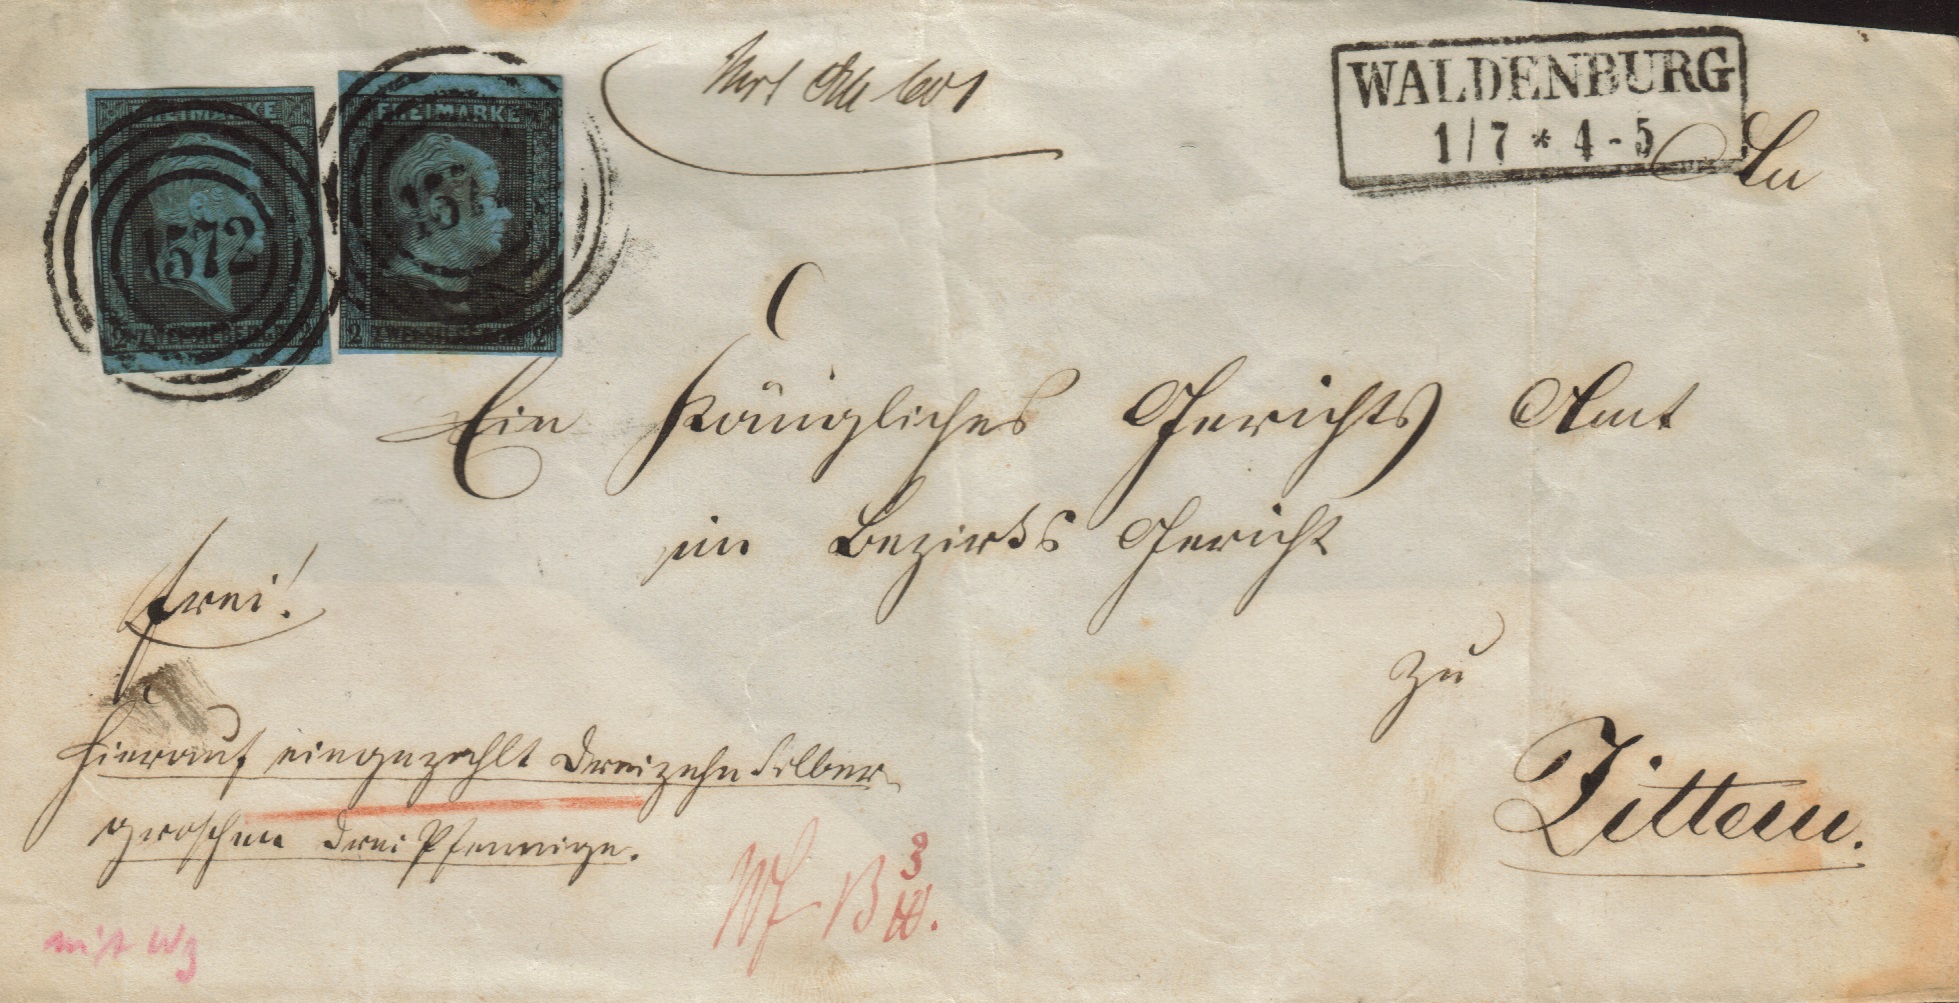 FREIMARKE
1572
2 ZWEI SILBERGR. 2
FREIMARKE
157
2 2
WALDENBURG
1/7 * 4-5
An
Ein Königliches Gerichts Amt
im Bezirks Gericht
frei!
zu
Zittau.
hierauf eingezahlt dreizehn Silber
groschen drei Pfennige.
mit Wz